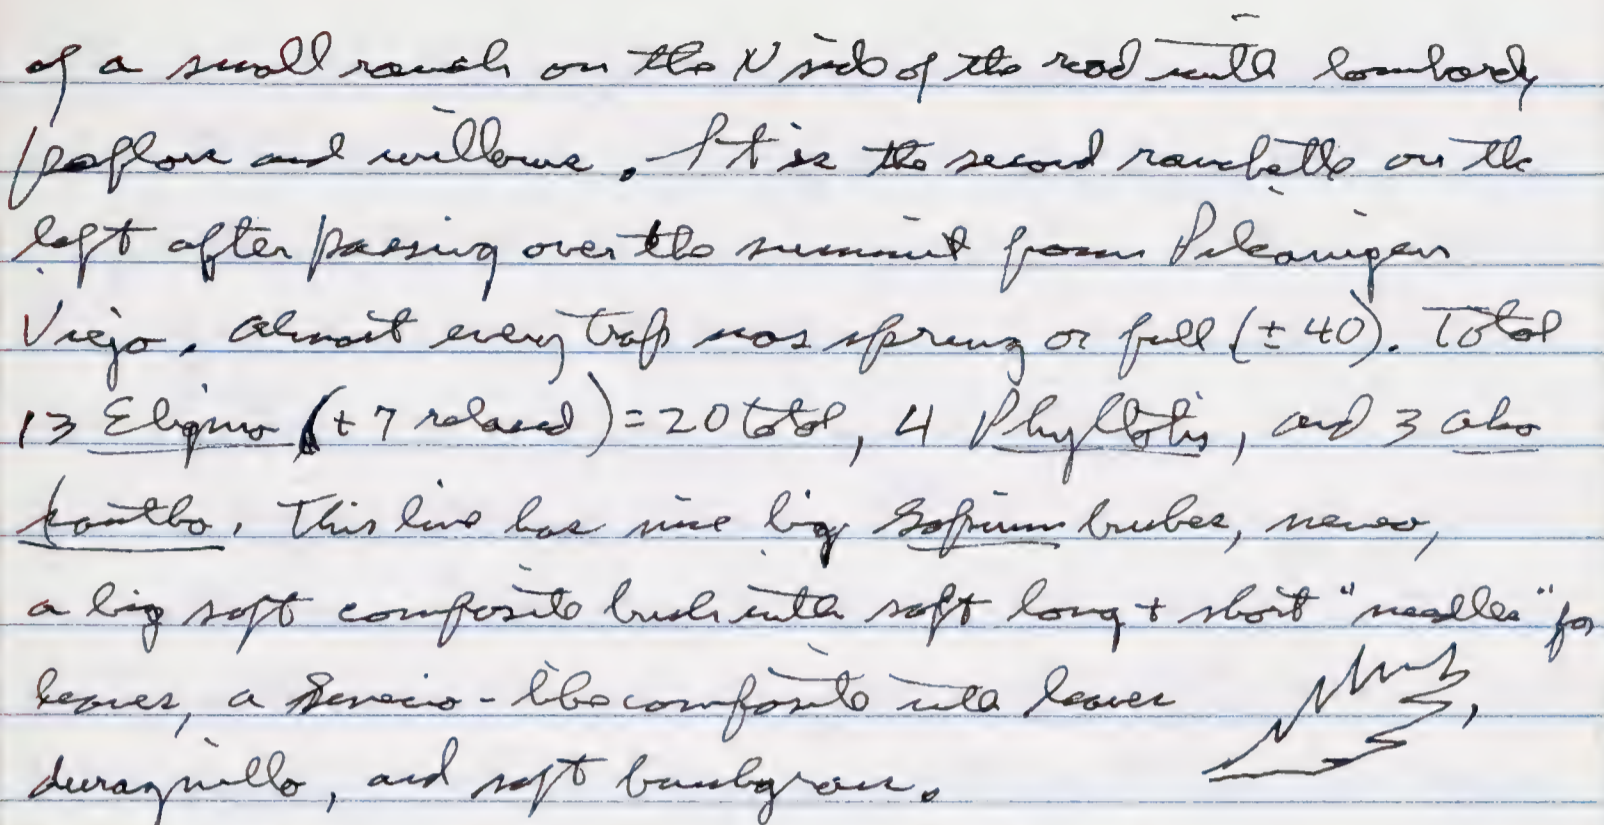 of a small ranch on the N side of the road with lombardy
poplars and willows. It is the second ranchette on the
left after passing over the summit from Pilcaniyeu
Viejo. Almost every trap was sprung or full (± 40). Total
13 Eligmo (+ 7 released) = 20 total, 4 Phyllotis, and 3 ako
dontho. This line has nice big Sapium bushes, neneo,
a big soft composite bush with soft long + short "needles" for
leaves, a Senecio-like composite with leaves ,
duraznillo, and soft bunchgrass.